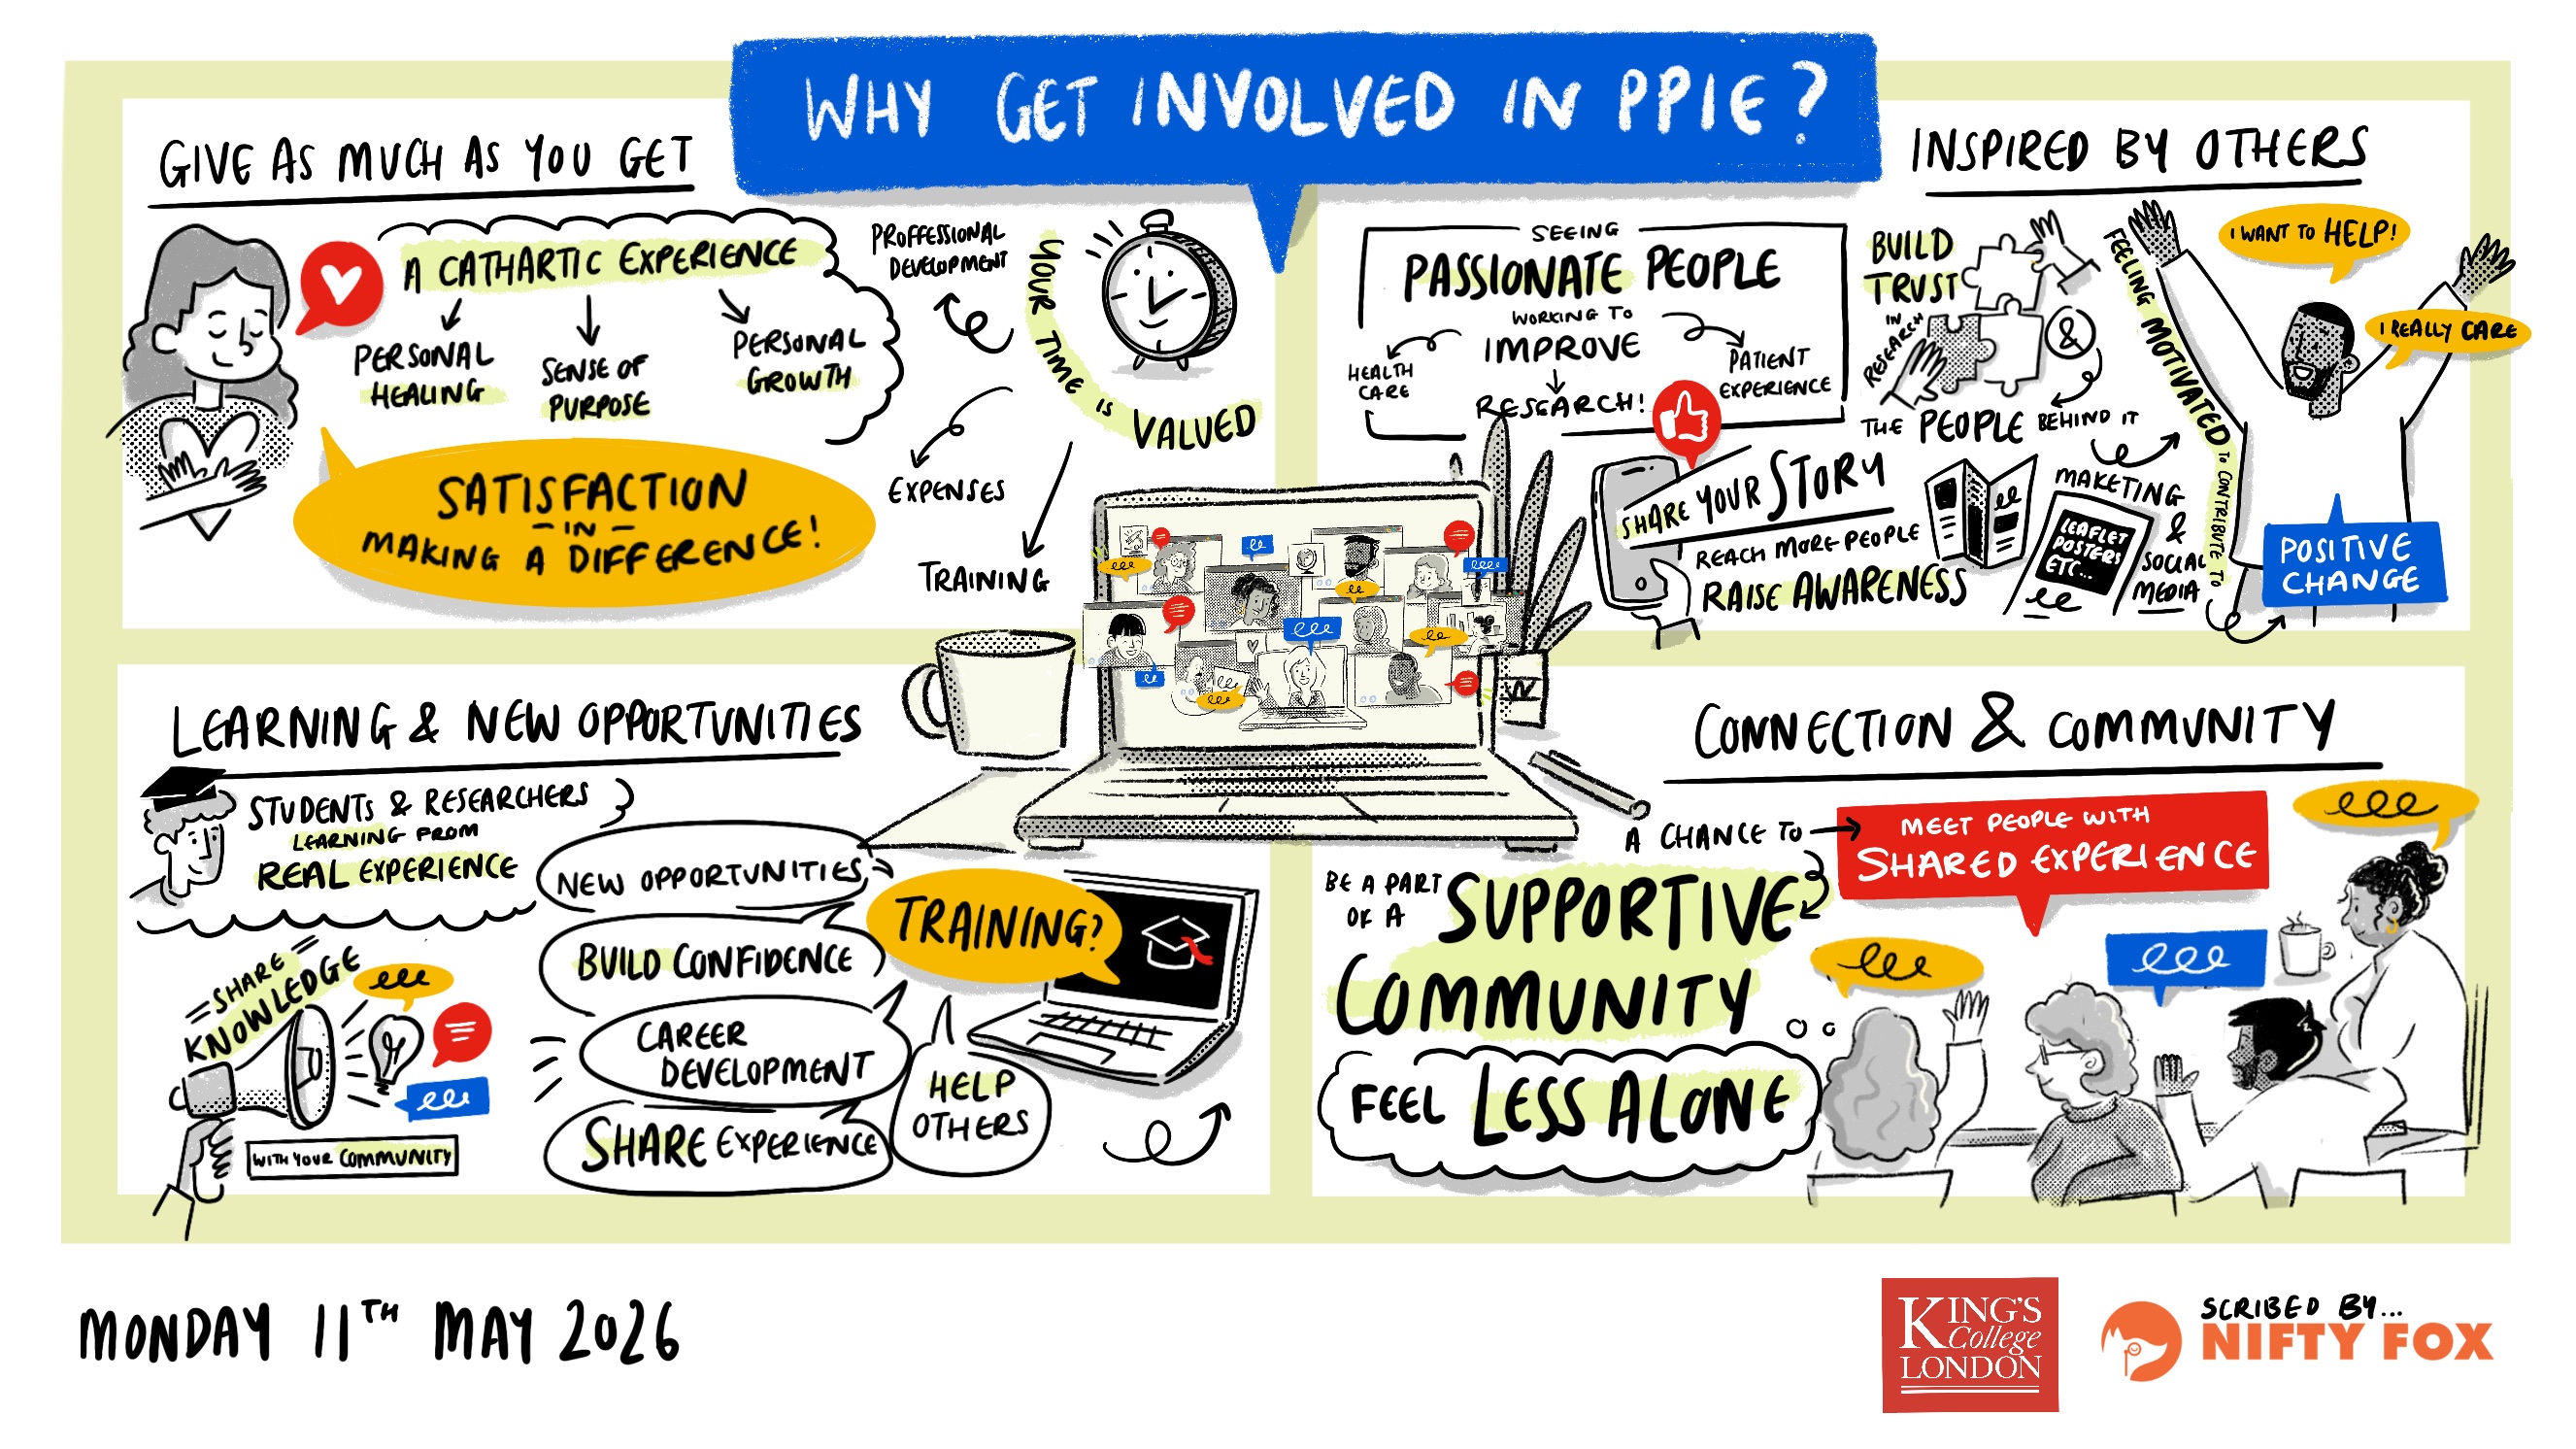 WHY GET INVOLVED IN PPIE?
GIVE AS MUCH AS YOU GET
A CATHARTIC EXPERIENCE
PERSONAL
HEALING
SENSE OF
PURPOSE
PERSONAL
GROWTH
SATISFACTION
- IN -
MAKING A DIFFERENCE!
PROFFESSIONAL
DEVELOPMENT
YOUR TIME IS VALUED
EXPENSES
TRAINING
INSPIRED BY OTHERS
SEEING
PASSIONATE PEOPLE
WORKING TO
IMPROVE
HEALTH
CARE
RESEARCH!
PATIENT
EXPERIENCE
BUILD
TRUST
IN
RESEARCH
&
THE PEOPLE BEHIND IT
SHARE YOUR STORY
REACH MORE PEOPLE
RAISE AWARENESS
MAKETING
&
SOCIAL
MEDIA
LEAFLET
POSTERS
ETC...
FEELING MOTIVATED TO CONTRIBUTE TO
I WANT TO HELP!
I REALLY CARE
POSITIVE
CHANGE
LEARNING & NEW OPPORTUNITIES
STUDENTS & RESEARCHERS
LEARNING FROM
REAL EXPERIENCE
SHARE
KNOWLEDGE
WITH YOUR COMMUNITY
NEW OPPORTUNITIES
BUILD CONFIDENCE
CAREER
DEVELOPMENT
SHARE EXPERIENCE
TRAINING?
HELP
OTHERS
CONNECTION & COMMUNITY
A CHANCE TO
MEET PEOPLE WITH
SHARED EXPERIENCE
BE A PART
OF A
SUPPORTIVE
COMMUNITY
FEEL LESS ALONE
MONDAY 11TH MAY 2026
KING'S
College
LONDON
SCRIBED BY...
NIFTY FOX